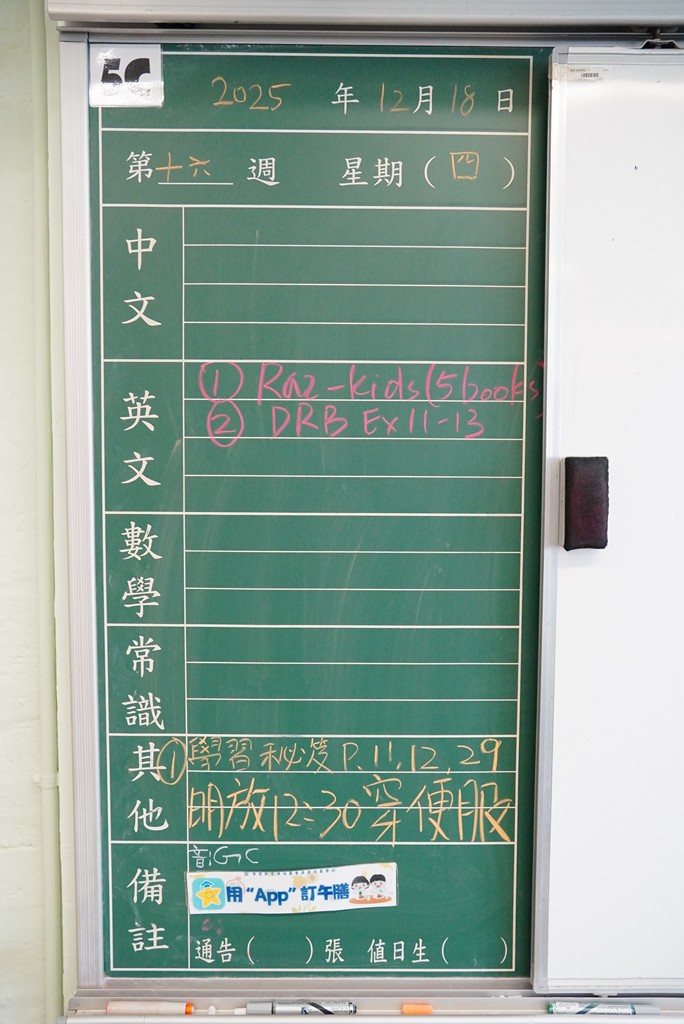 5C
2025 年 12月 18 日
第十六週 星期(四)
中文
英文
① Raz-kids(5books)
② DRB Ex11-13
數學
常識
其他
①學習秘笈 P.11,12,29
明放12:30穿便服
備註
音GC
用“App”訂午膳
通告( )張 值日生( )